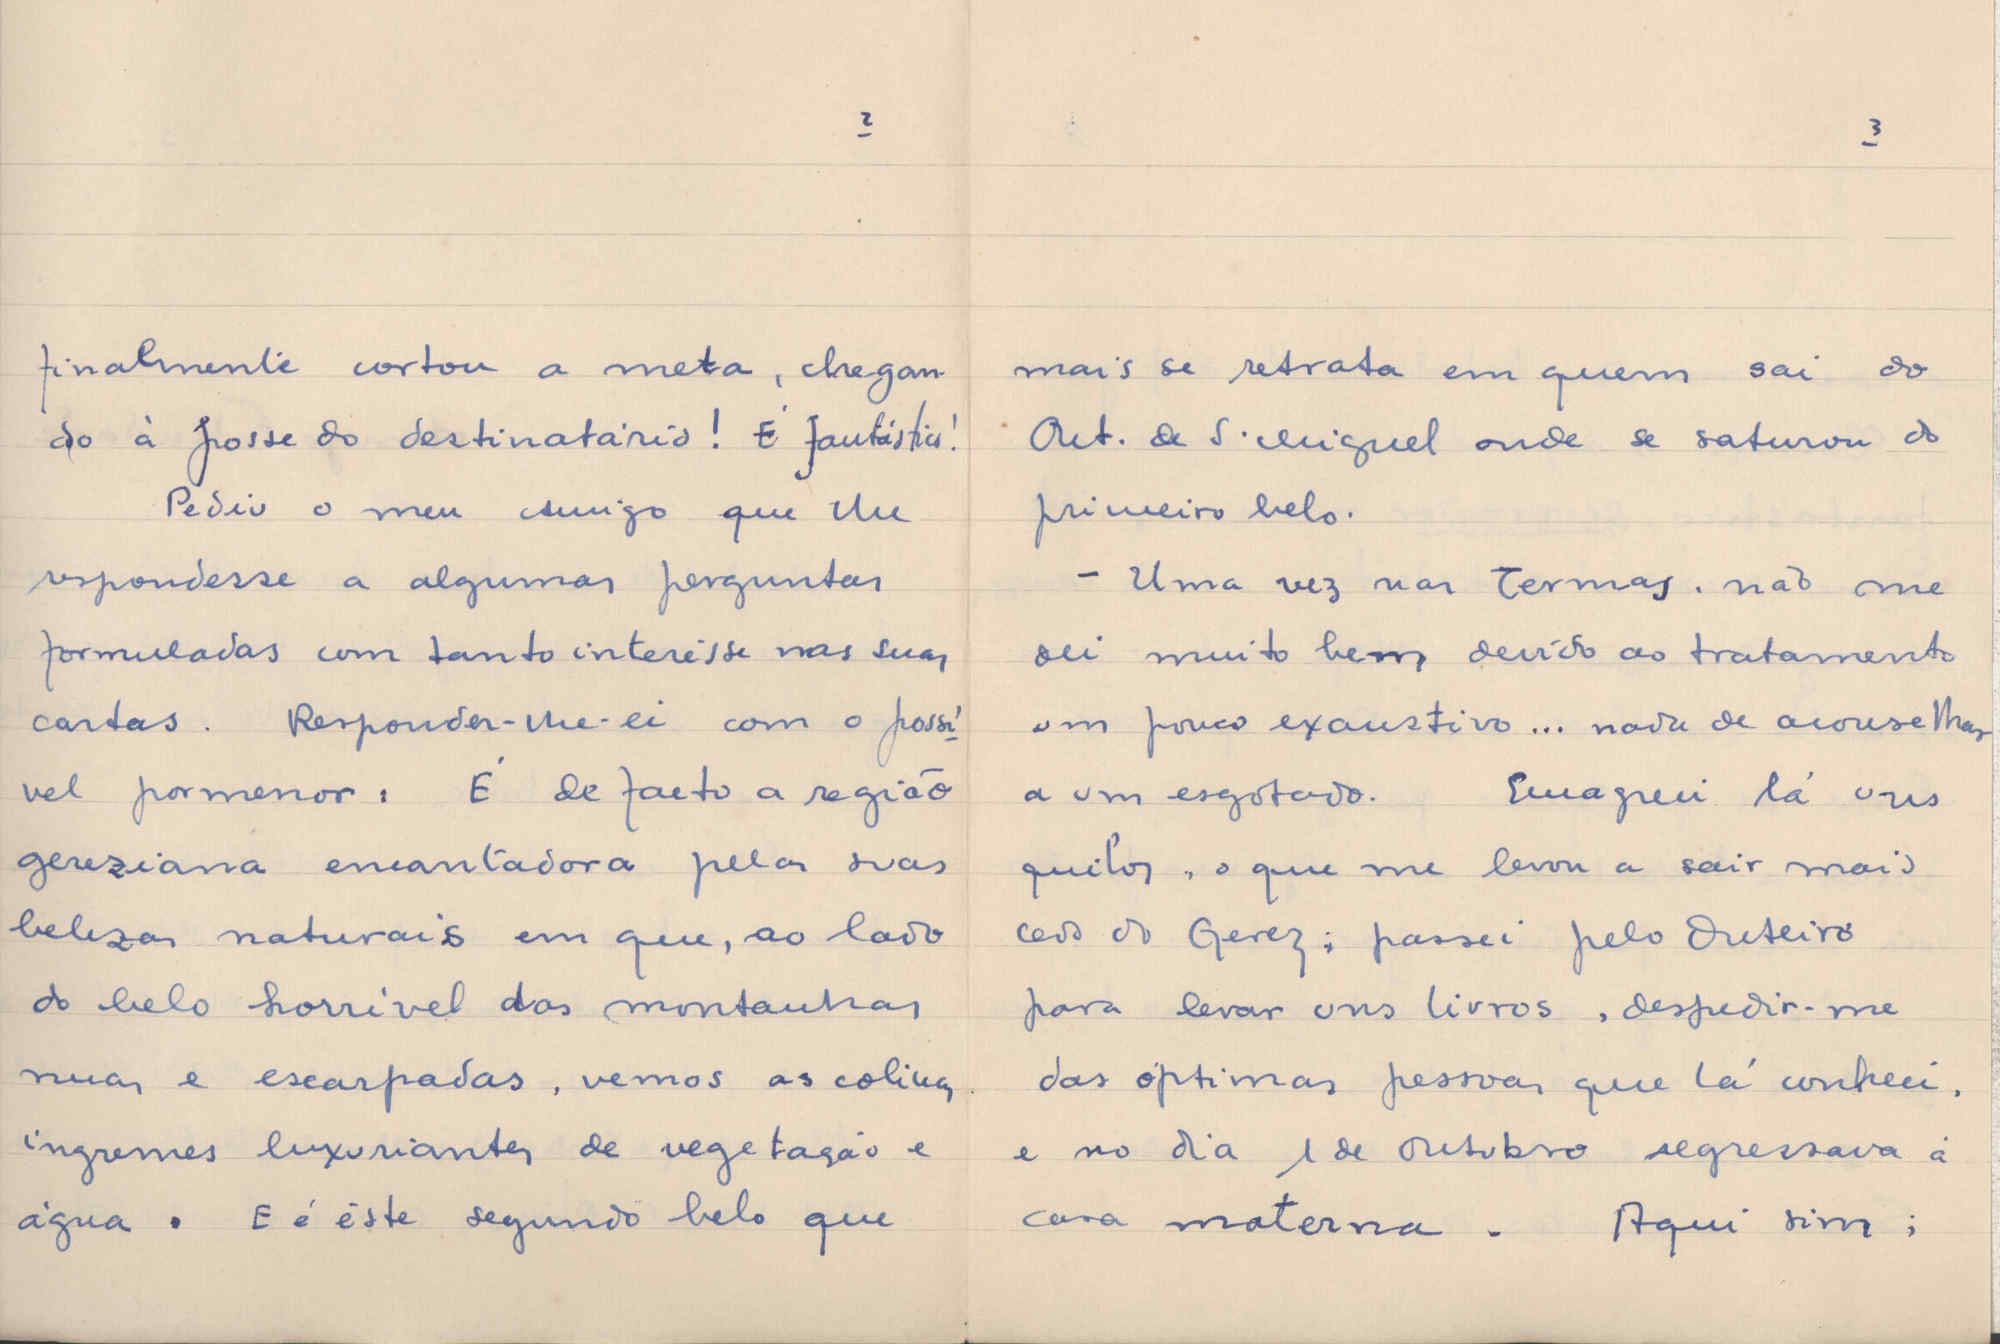 2
finalmente cortou a meta, chegan
do à posse do destinatário! É fantástico!
Pediu o meu Amigo que lhe
respondesse a algumas perguntas
formuladas com tanto interêsse nas suas
cartas. Responder-lhe-ei com o possí
vel pormenor: É de facto a região
gereziana encantadora pelas suas
belezas naturais em que, ao lado
do belo horrível das montanhas
nuas e escarpadas, vemos as colinas
ingremes luxuriantes de vegetação e
água. E é êste segundo belo que
3
mais se retrata em quem sai do
Out. de S. Miguel onde se saturou do
primeiro belo.
- Uma vez nas Termas, não me
dei muito bem devido ao tratamento
um pouco exaustivo... nada de aconselhar
a um esgotado. Emagreci lá uns
quilos, o que me levou a sair mais
cedo do Gerez; passei pelo Outeiro
para levar uns livros, despedir-me
das óptimas pessoas que lá conheci,
e no dia 1 de Outubro regressava à
casa materna. Aqui sim;